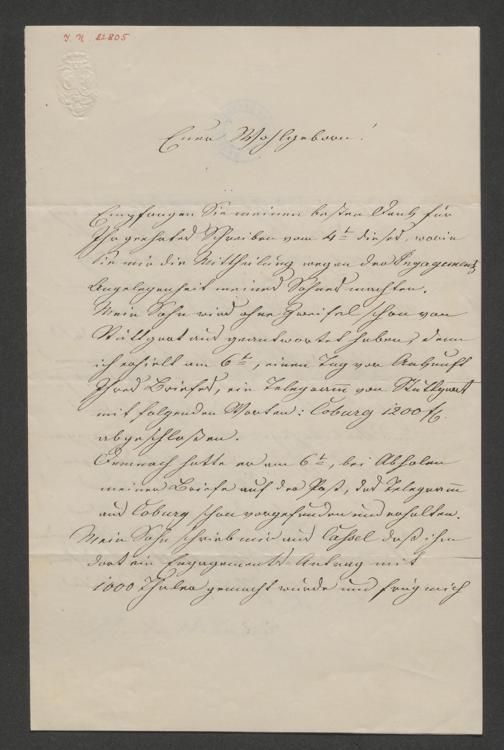 I. N. 82805
Euer Wohlgeboren!
Empfangen Sie meinen besten Dank für
Ihr geehrtes Schreiben vom 4t dieses, worin
Sie mir die Mittheilung wegen der Engagements
Angelegenheit meines Sohnes machten.
Mein Sohn wird ohne Zweifel schon von
Stuttgart aus geantwortet haben, denn
ich erhielt am 6t, einen Tag vor Ankunft
Ihres Briefes, ein Telegram von Stuttgart
mit folgenden Worten: Coburg 1200 fl.
abgeschloßen.
Demnach hatte er am 6t, bei Abholen
meiner Briefe auf der Post, das Telegram̅
aus Coburg schon vorgefunden und erhalten.
Mein Sohn schrieb mir aus Cassel daß ihm
dort ein Engagements Antrag mit
1000 Thaler gemacht wurde und frug mich